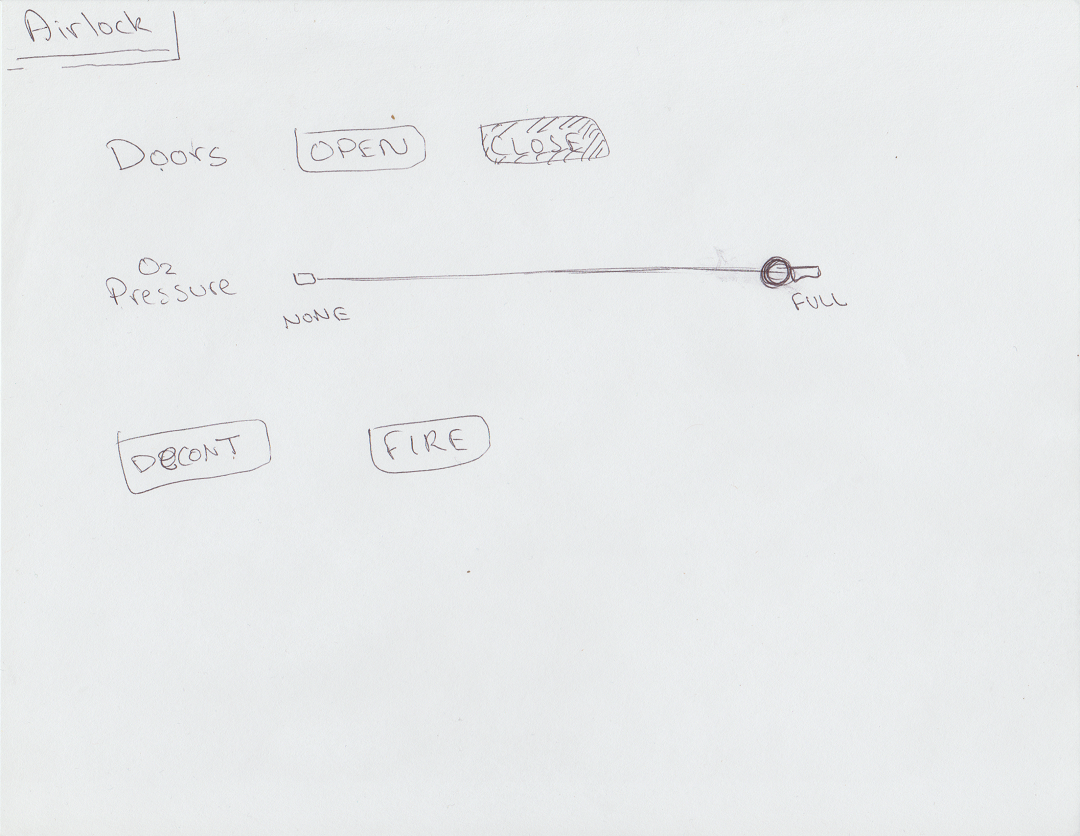 Airlock
Doors OPEN CLOSE
O2
Pressure
NONE FULL
DECONT FIRE